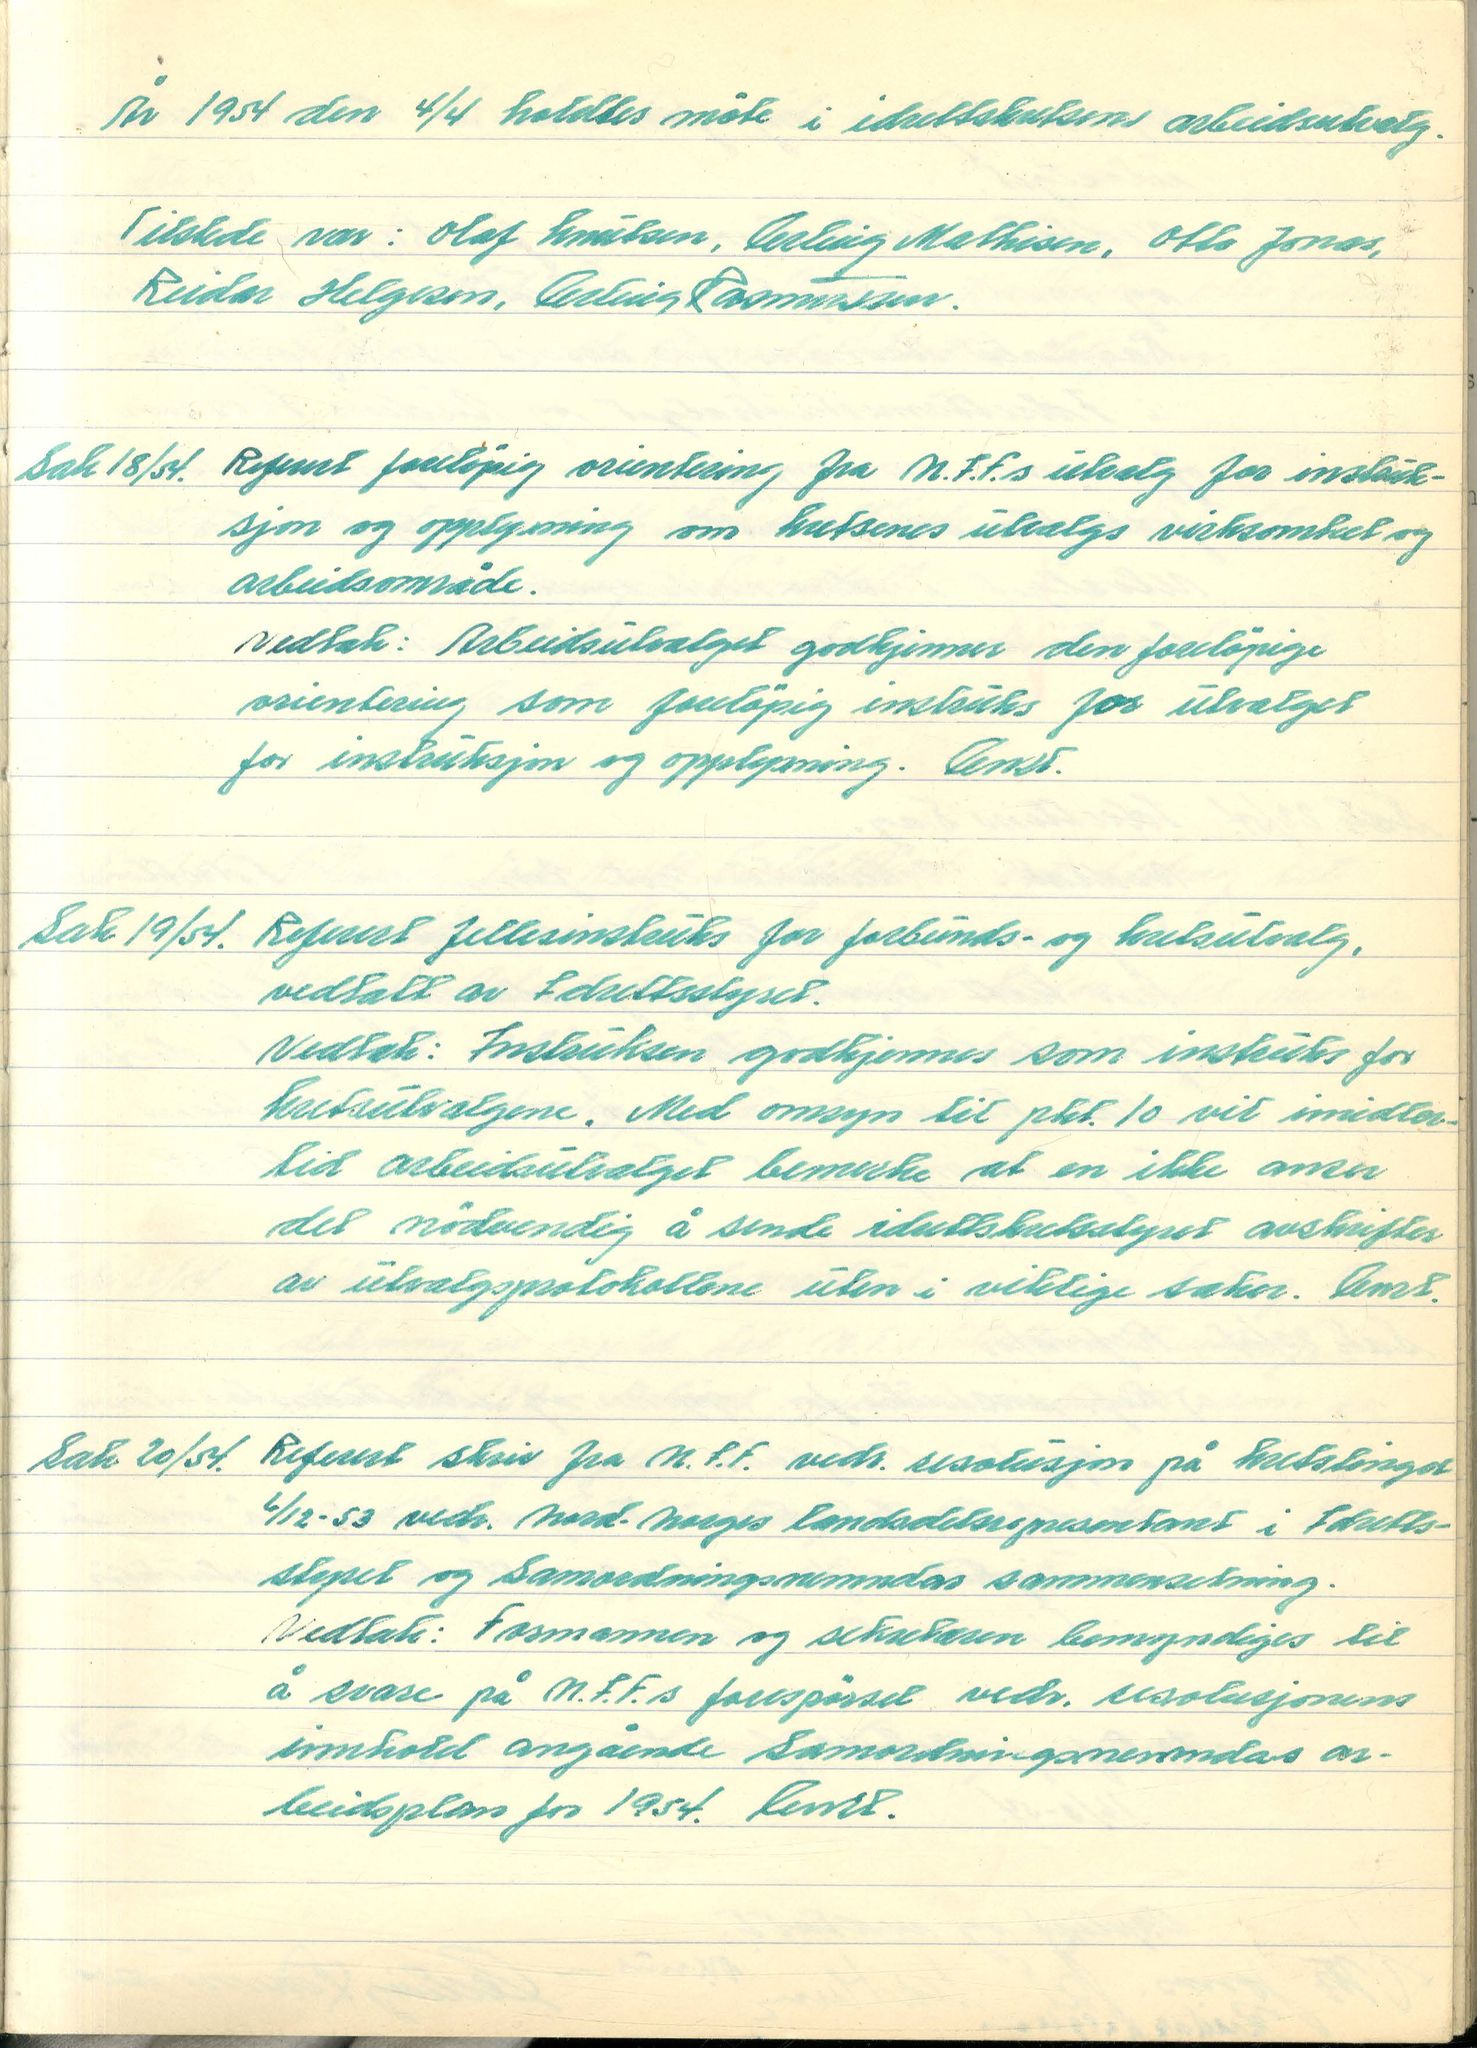 År 1954 den 4/4 holdtes möte i idrettskretsens arbeidsutvalg.
Tilstede var: Olaf Knutsen, Erling Mathisen, Otto Jonas,
Reidar Helgesen, Erling Rasmussen.
Sak 18/54. Referert foreløpig orientering fra N.F.F.s utvalg for instruk-
sjon og opplysning om kretsenes utvalgs virksomhet og
arbeidsområde.
Vedtak: Arbeidsutvalget godkjenner den foreløpige
orientering som foreløpig instruks for utvalget
for instruksjon og opplysning. Enst.
Sak 19/54. Referert fellesinstruks for forbunds- og kretsutvalg,
vedtatt av Idrettsstyret.
Vedtak: Instruksen godkjennes som instruks for
kretsutvalgene. Med omsyn til pkt. 10 vil imidler-
tid arbeidsutvalget bemerke at en ikke anser
det nödvendig å sende idrettskretsstyret avskrifter
av utvalgsprotokollene uten i viktige saker. Enst.
Sak 20/54. Referert skriv fra N.F.F. vedr. resolusjon på kretstinget
/12-53 vedr. Nord-Norges landsdelsrepresentant i Idretts-
styret og Samordningsnemndas sammensetning.
Vedtak: Formannen og sekretæren bemyndiges til
å svare på N.F.F.s forespörsel vedr. resolusjonens
innhold angående Samordningsnemndas ar-
beidsplan for 1954. Enst.